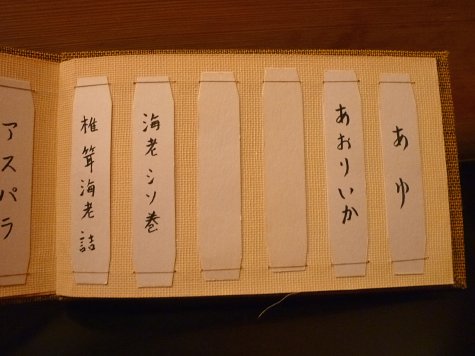 あゆ
あおりいか
海老シソ巻
椎茸海老詰
アスパラ